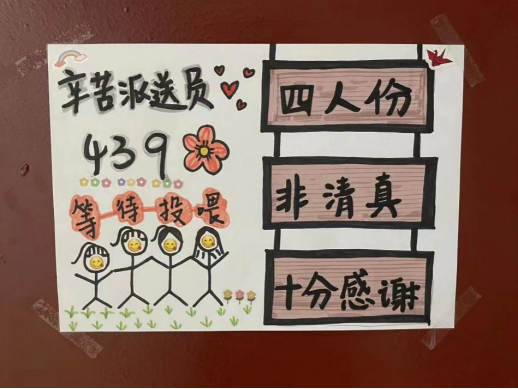 辛苦派送员
439
等待投喂
四人份
非清真
十分感谢